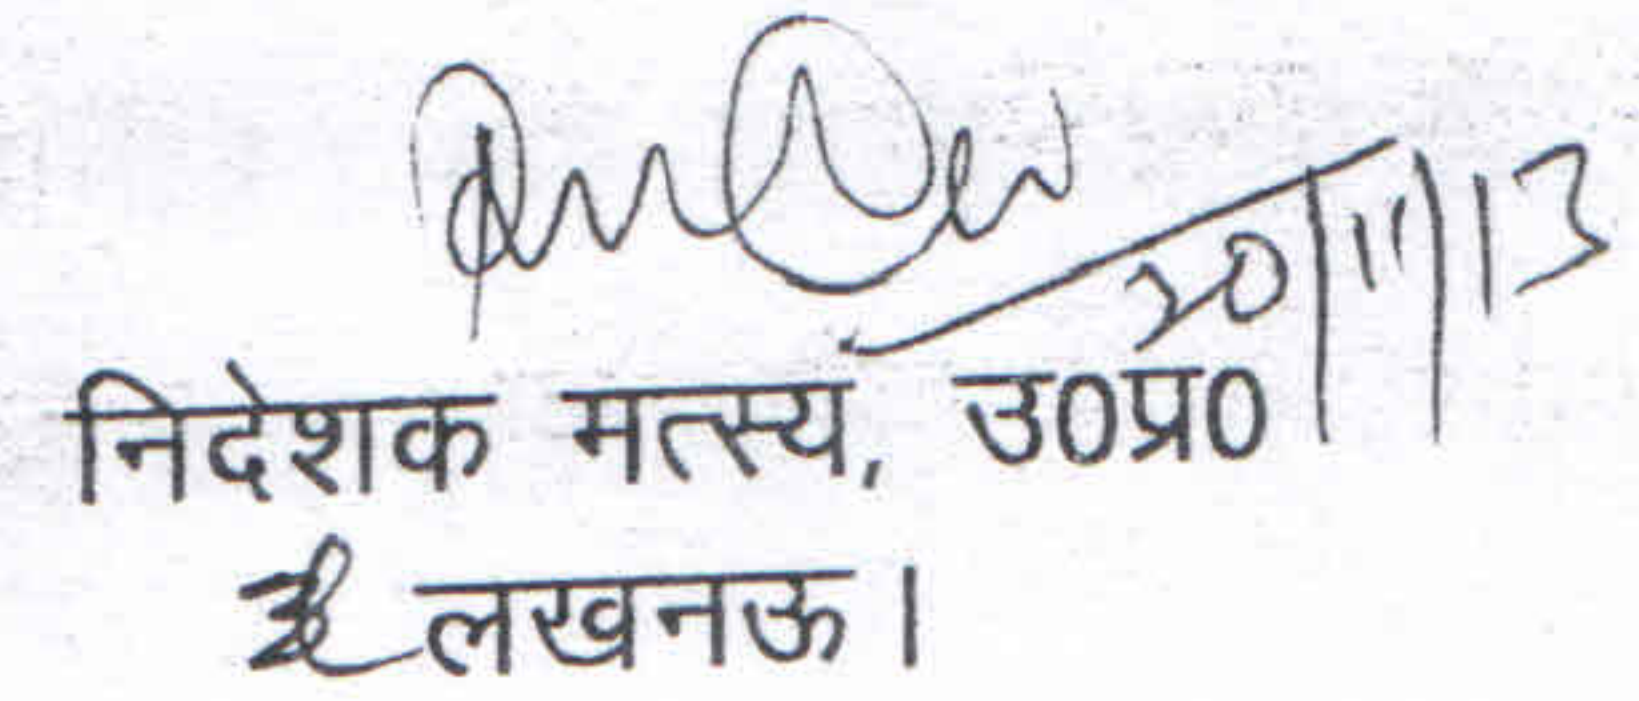 20/11/13
निदेशक मत्स्य, उ0प्र0
लखनऊ।